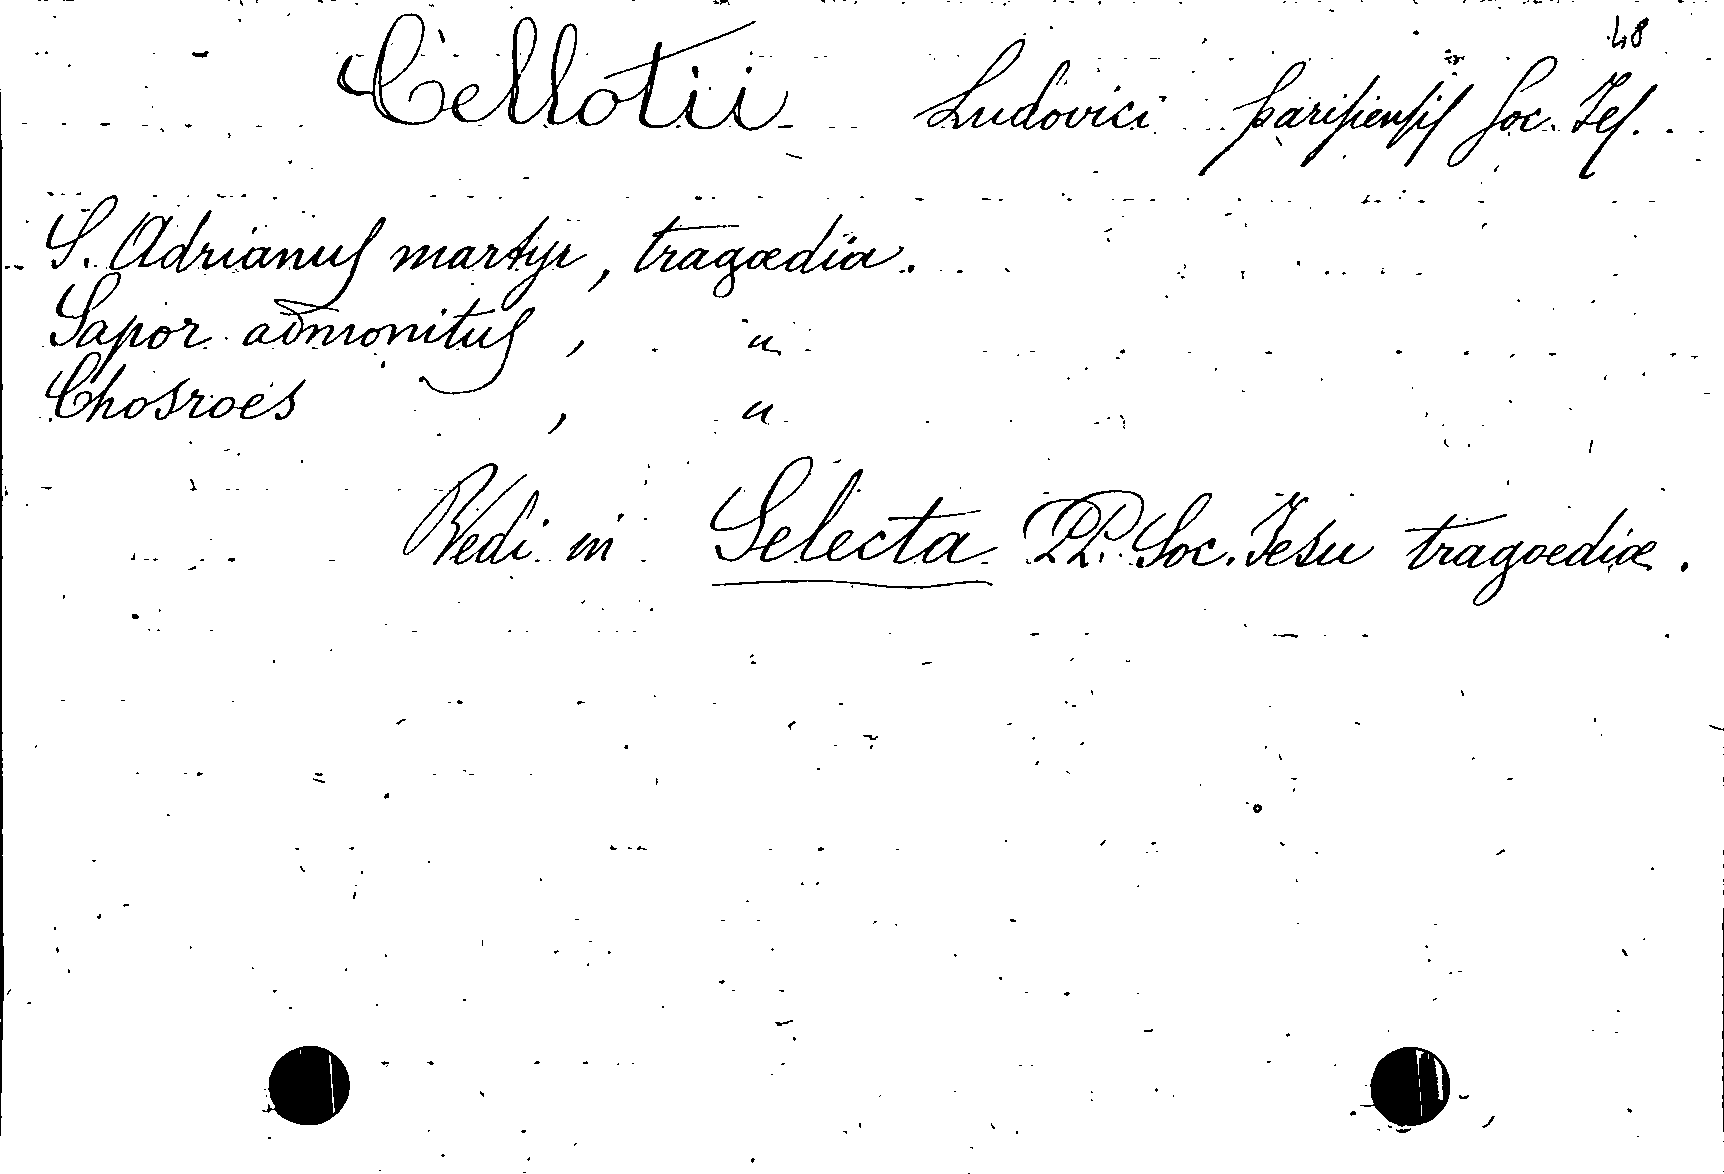 48
Cellotii Ludovici parisiensis Soc. Jes.
S. Adrianus martyr, tragœdia.
Sapor admonitus, "
Chosroes, "
Vedi in Selecta PP. Soc. Jesu tragoediæ.